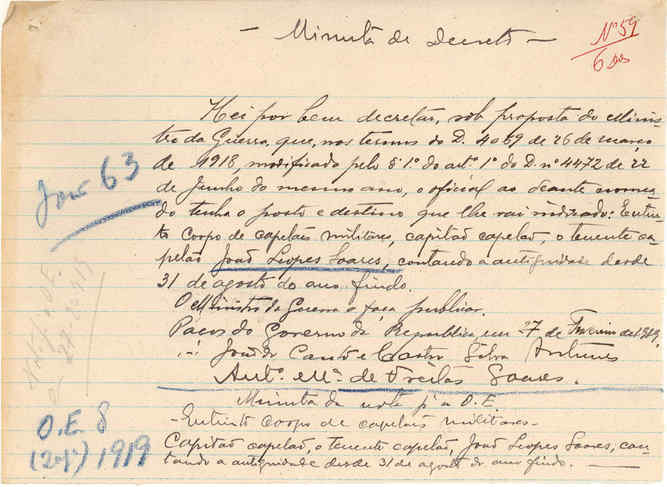 - Minuta de Decreto -
Nº 59
6
Hei por bem decretar, sob proposta do Minis
tro da Guerra, que, nos termos do D. 4059 de 26 de março
de 1918, modificado pelo § 1º do artº 1º do D. nº 4472 de 22
de Junho do mesmo ano, o oficial ao deante nomea
do tenha o posto e destino que lhe vai indicado: Extin
to Corpo de capelães militares, capitão capelão, o tenente ca
pelão João Liopes Soares, contando a antiguidade desde
31 de agosto do ano findo.
O Ministro da Guerra o faça publicar.
Paços do Governo da Republica, em 27 de Fevereiro de 1919.
João do Canto e Castro Silva Antunes
Antº. Mª. de Freitas Soares.
Minuta da nota pª a O.E.
- Extinto Corpo de capelães militares -
Capitão capelão, o tenente capelão, João Liopes Soares, con
tando a antiguidade desde 31 de agosto do ano findo.
63
O.E. 8
(2ª) 1919